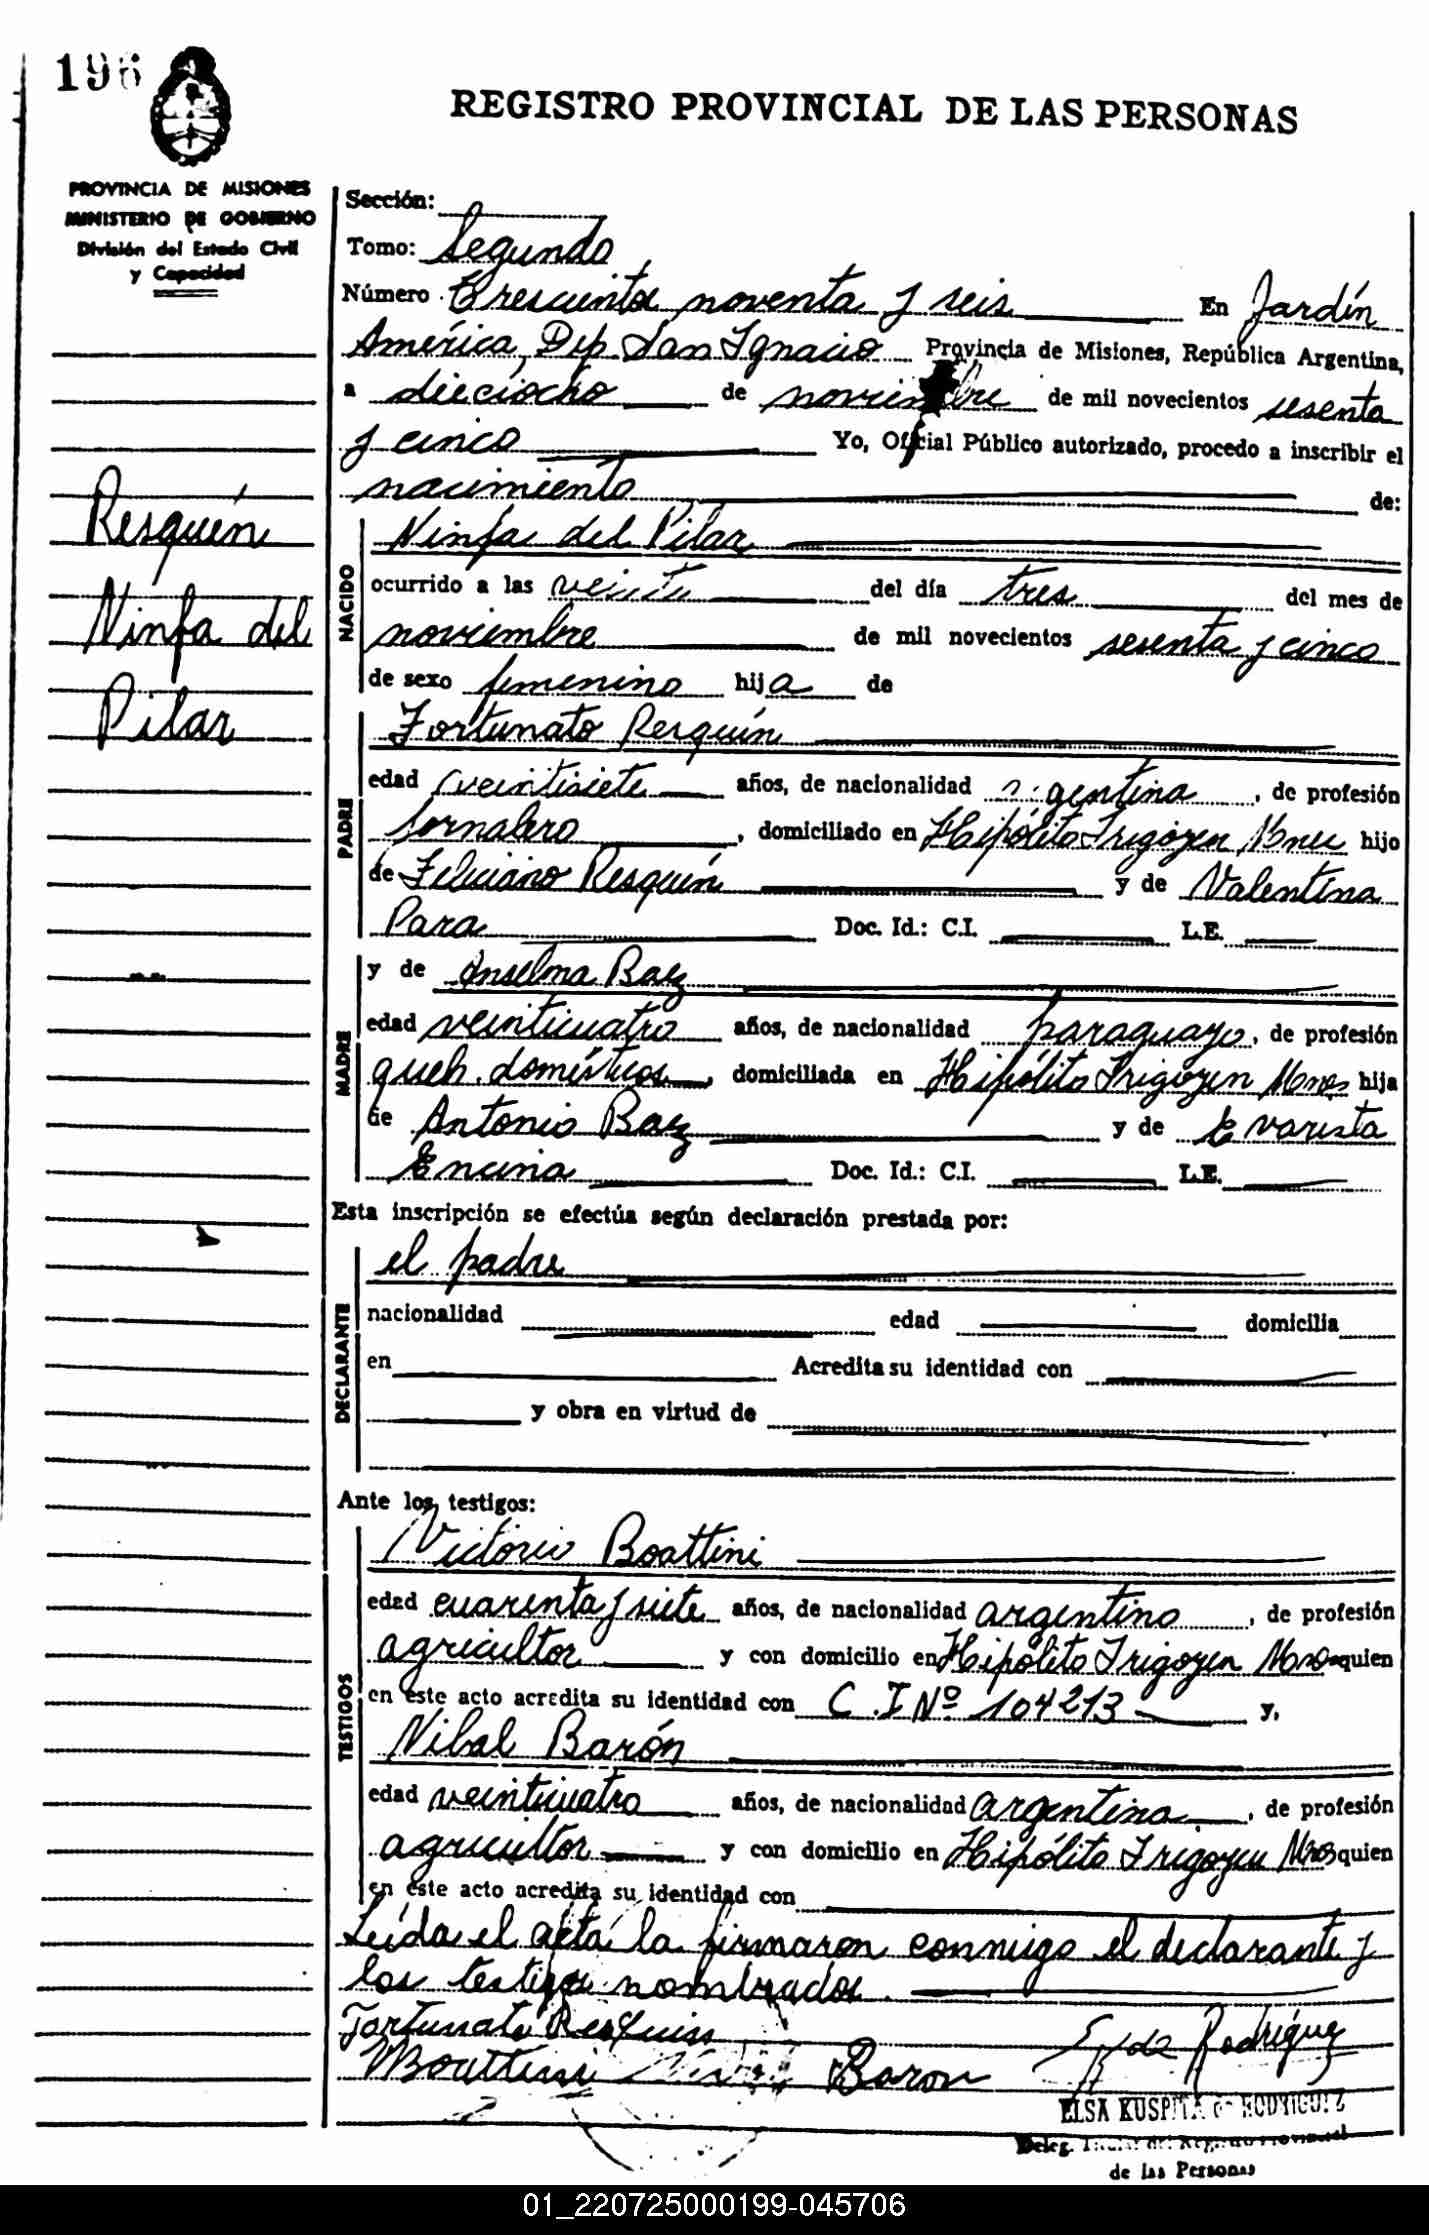 196
REGISTRO PROVINCIAL DE LAS PERSONAS
PROVINCIA DE MISIONES
MINISTERIO DE GOBIERNO
División del Estado Civil
y Capacidad
Resquín
Ninfa del
Pilar
Sección:
Tomo: Segundo
Número Trescientos noventa y seis En Jardín
América, Dep. San Ignacio Provincia de Misiones, República Argentina,
a dieciocho de noviembre de mil novecientos sesenta
y cinco Yo, Oficial Público autorizado, procedo a inscribir el
nacimiento de:
NACIDO
Ninfa del Pilar
ocurrido a las veinte del día tres del mes de
noviembre de mil novecientos sesenta y cinco
de sexo femenino hija de
PADRE
Fortunato Resquín
edad veintisiete años, de nacionalidad argentina, de profesión
Jornalero, domiciliado en Hipólito Irigoyen Mnes hijo
de Feliciano Resquín y de Valentina
Para Doc. Id.: C.I. L.E.
MADRE
y de Anselma Baez
edad veinticuatro años, de nacionalidad paraguayo, de profesión
queh. domésticos, domiciliada en Hipólito Irigoyen Mnes hija
de Antonio Baez y de Evarista
Encina Doc. Id.: C.I. L.E.
Esta inscripción se efectúa según declaración prestada por:
DECLARANTE
el padre
nacionalidad edad domicilia
en Acredita su identidad con
y obra en virtud de
Ante los testigos:
TESTIGOS
Victorio Boattini
edad cuarenta y siete años, de nacionalidad argentino, de profesión
agricultor y con domicilio en Hipólito Irigoyen Mnes quien
en este acto acredita su identidad con C.I Nº 104213 y,
Nibal Barón
edad veinticuatro años, de nacionalidad argentina, de profesión
agricultor y con domicilio en Hipólito Irigoyen Mnes quien
en este acto acredita su identidad con
Leída el acta la firmaron conmigo el declarante y
los testigos nombrados.
Fortunato Resquin
Boattini Baron
E K de Rodríguez
ELSA KUSPITA de RODRIGUEZ
Deleg. Titular del Registro Provincial
de las Personas
01_220725000199-045706